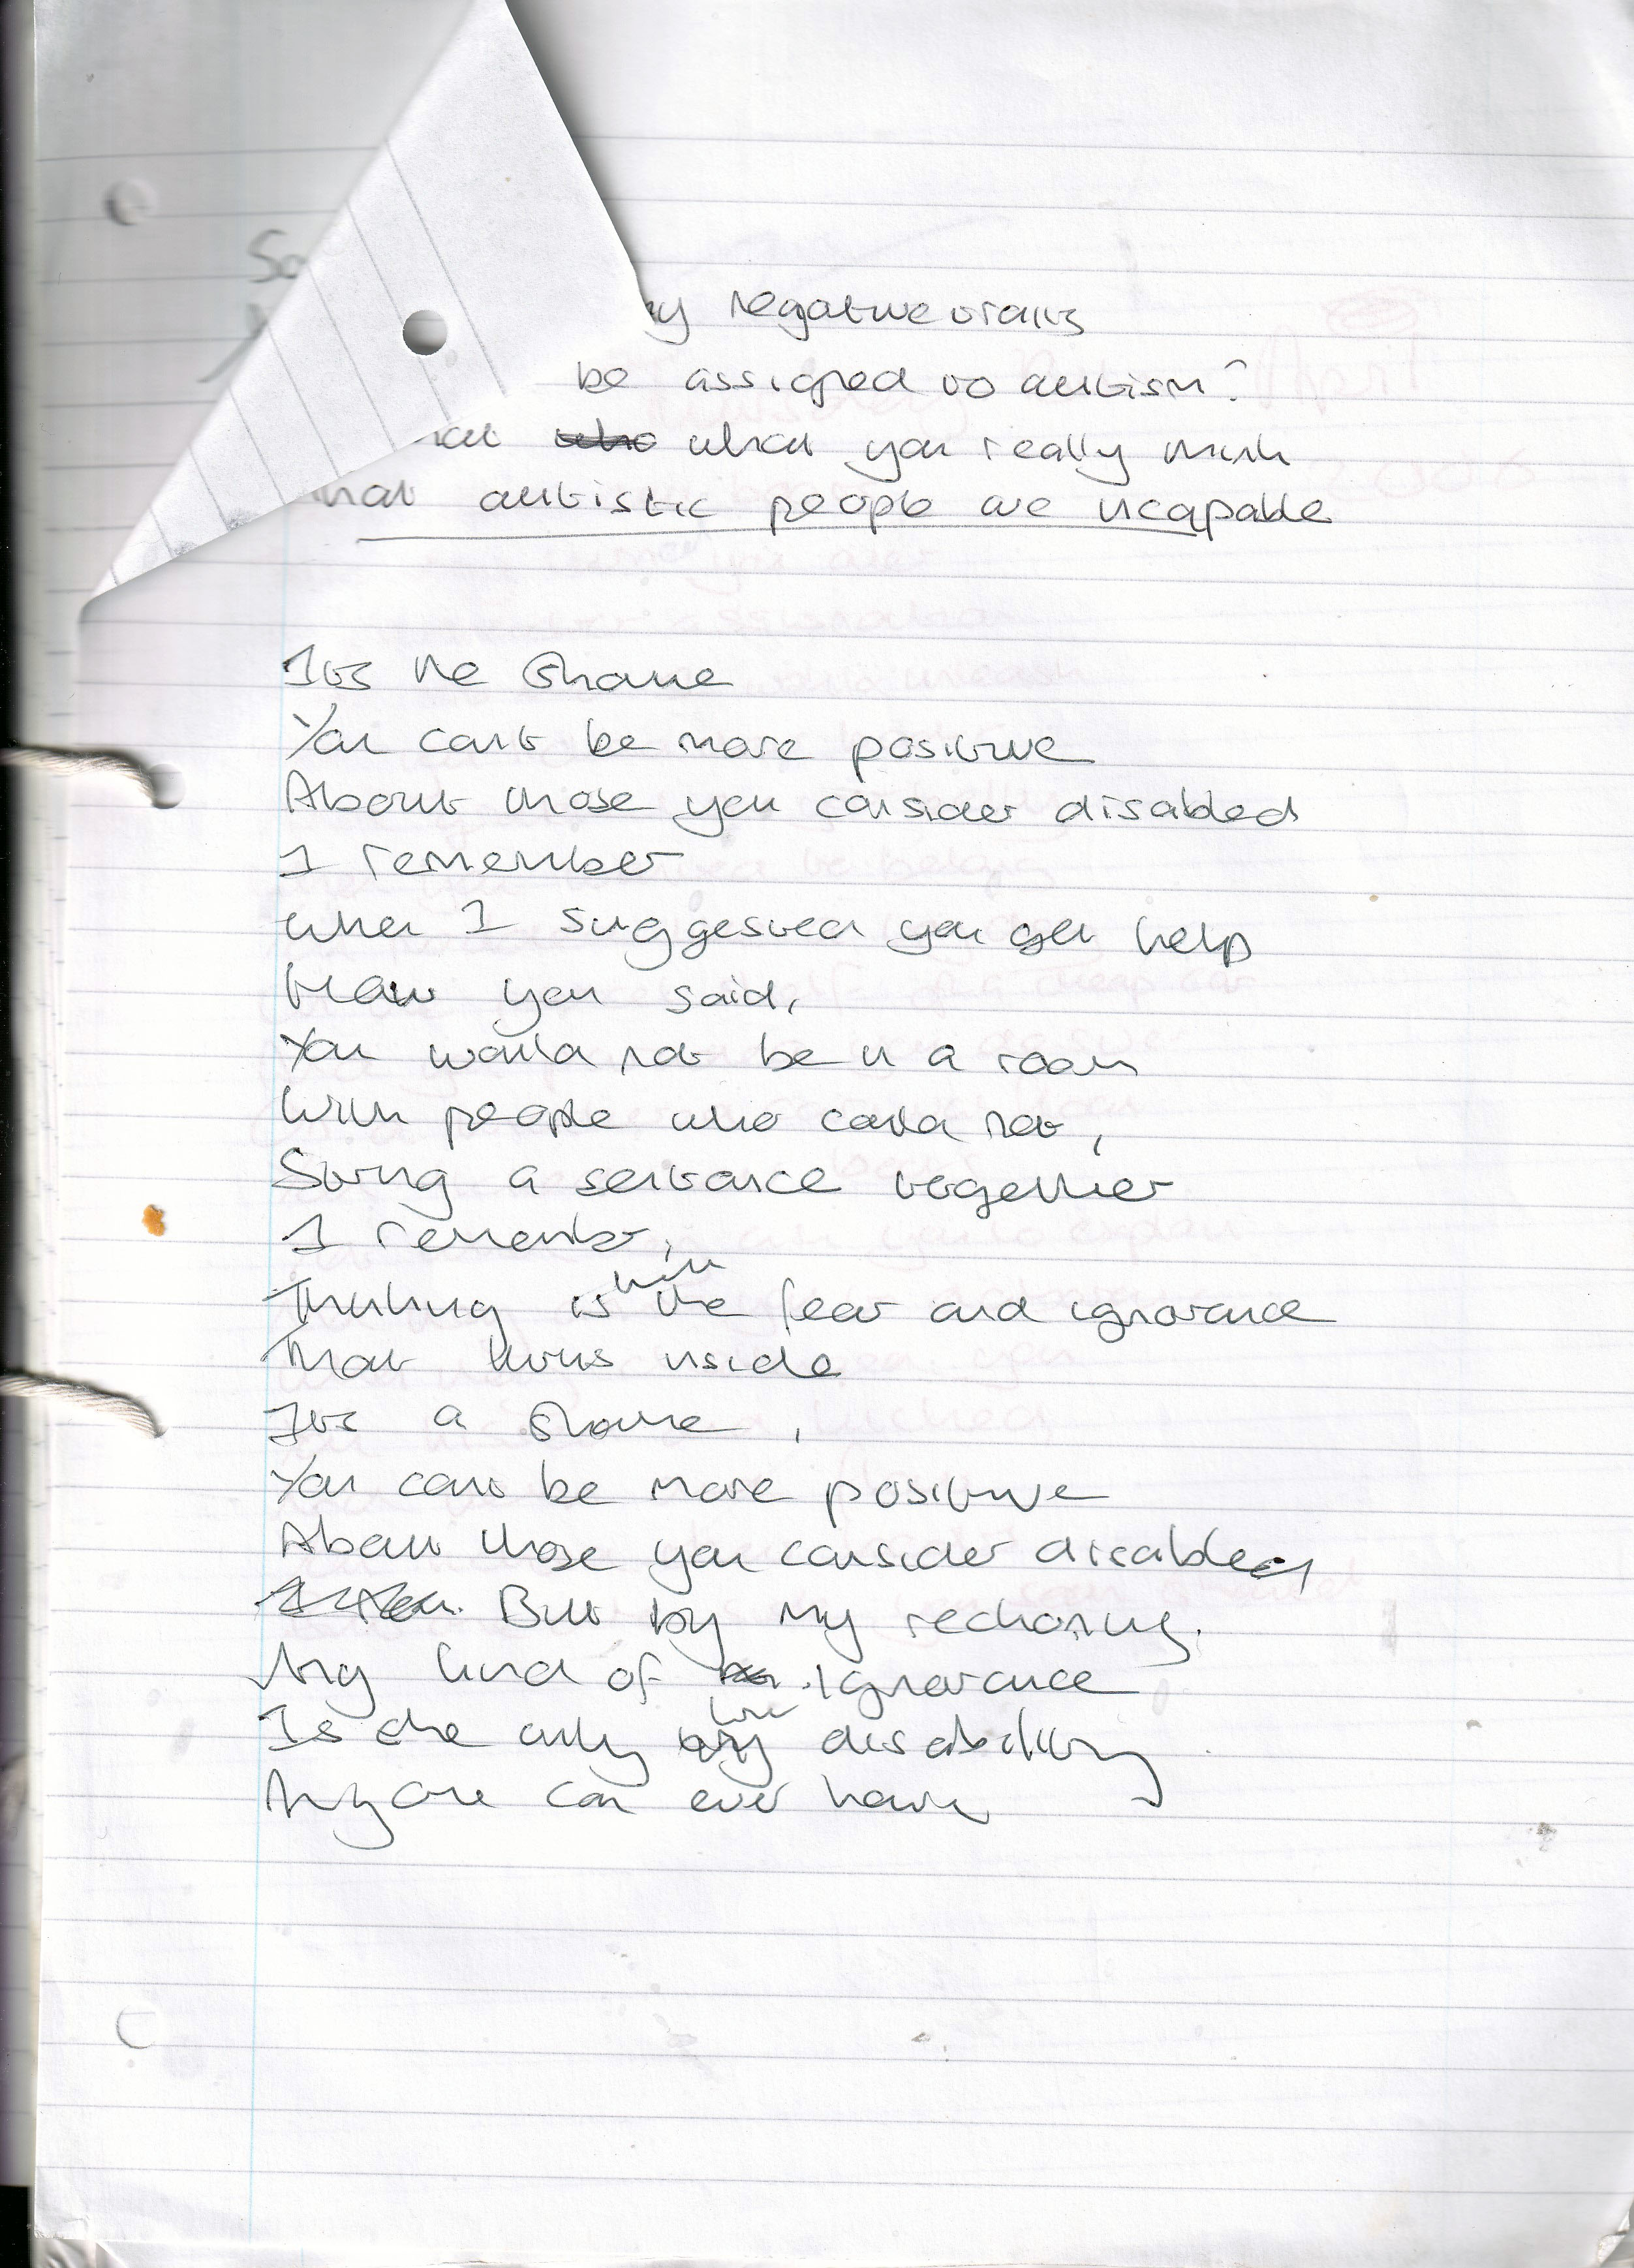 So
negative traits
be assigned to autism?
what you really think
that autistic people are incapable
Its the shame
You cant be more positive
About those you consider disabled
I remember
when I suggested you get help
How you said,
You would not be in a room
With people who could not,
String a sentence together
I remember,
Thinking is the fear and ignorance
with
That lives inside
Its a shame,
You cant be more positive
About those you consider disabled
But by my reckoning.
Any kind of ignorance
Is the only true disability
Anyone can ever have